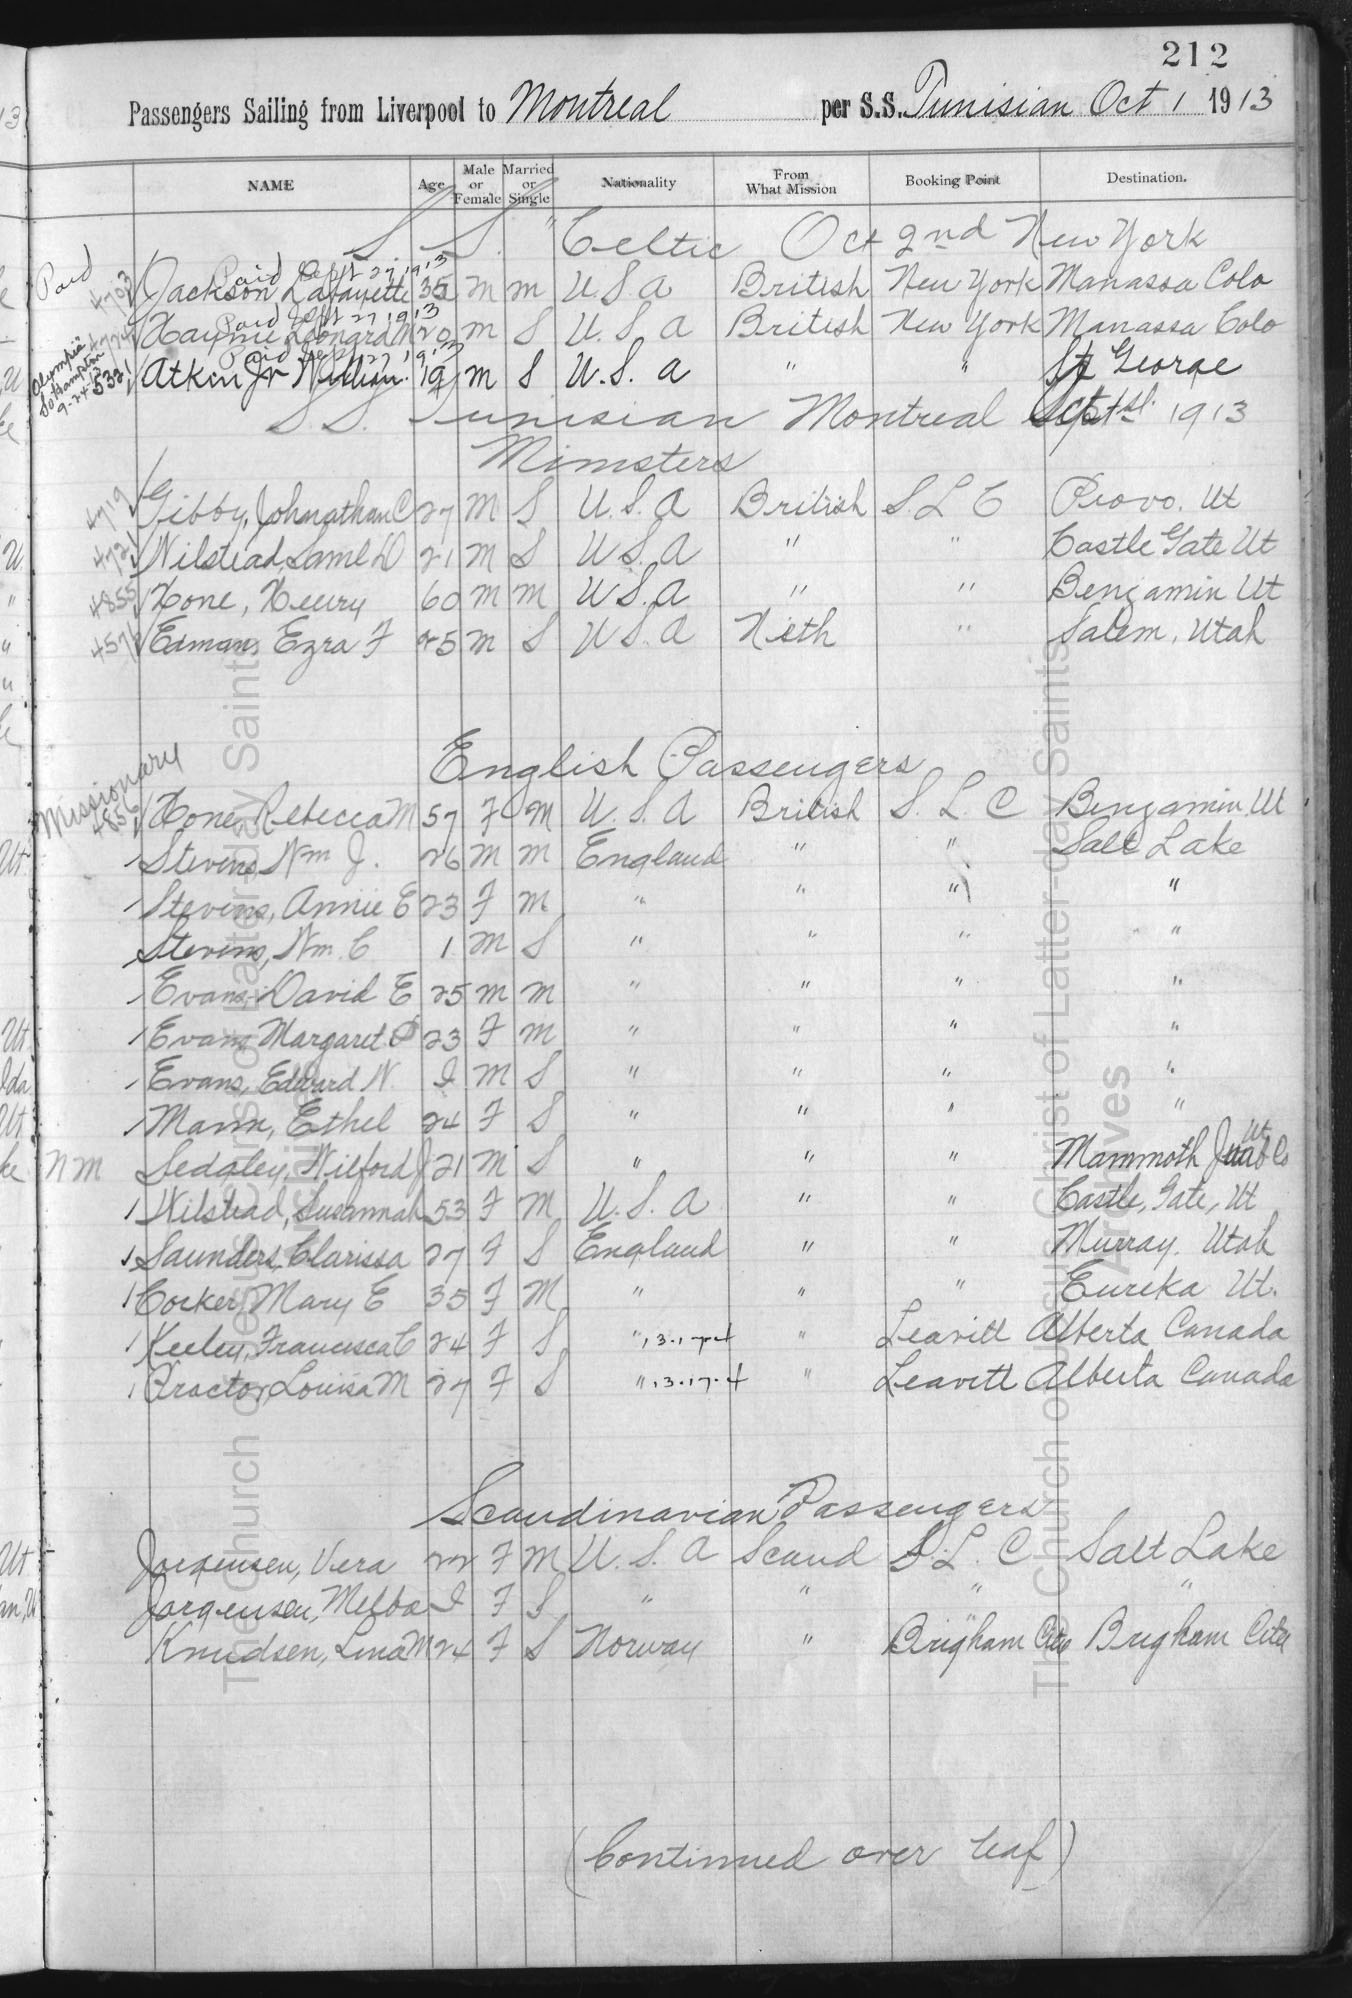 212
Passengers Sailing from Liverpool to Montreal per S.S. Tunisian Oct 1 1913
NAME Age Male or Female Married or Single Nationality From What Mission Booking Point Destination.
S. S. "Celtic Oct 2nd New York
Paid Sept 27 1913
Paid 4703 Jackson Lafayette 35 M M U.S.A British New York Manassa Colo
Paid Sept 27 1913
4724 Haynie Leonard M 20 M S U.S.A British New York Manassa Colo
Paid Sept 27 1913
Olympic So'Hampton 9-24-13 5321 Atkin Jr William 19 M S U.S.A " " St George
S.S. Tunisian Montreal Sept 1st 1913
Ministers
4719 Gibby, Johnathan C 27 M S U.S.A British S L C Provo. Ut
4721 Wilstead, Saml D 21 M S U.S.A " " Castle Gate Ut
4855 Hone, Henry 60 M M U.S.A " " Benjamin Ut
Edman, Ezra F 25 M S U.S.A Neth " Salem, Utah
English Passengers
Missionary 4856 Hone, Rebecca M 57 F M U.S.A British S. L C Benjamin Ut
1 Stevens, Wm J. 26 M M England " " Salt Lake
1 Stevens, Annie E 23 F M " " " "
1 Stevens, Wm. C 1 M S " " " "
1 Evans, David E 25 M M " " " "
1 Evans Margaret 23 F M " " " "
1 Evans, Edward W. I M S " " " "
1 Mann, Ethel 24 F S " " " "
N M Sedgley, Wilford J 21 M S " " " Mammoth Juab Co Ut
1 Wilstead, Susannah 53 F M U.S.A " " Castle, Gate, Ut
1 Saunders, Clarissa 27 F S England " " Murray. Utah
1 Corker, Mary E 35 F M " " " Eureka Ut.
1 Keeley, Francesca C 24 F S " 13.17.4 " Leavitt Alberta Canada
1 Proctor, Louisa M 27 F S " 13.17.4 " Leavitt Alberta Canada
Scandinavian Passengers
Jorgensen, Vera 22 F M U.S.A Scand S.L.C Salt Lake
Jorgensen, Melba I F S " " " "
Knudsen, Lina M 24 F S Norway " Brigham City Brigham City
(Continued over leaf)
The Church of Jesus Christ of Latter-day Saints
Archives
The Church of Jesus Christ of Latter-day Saints
Archives